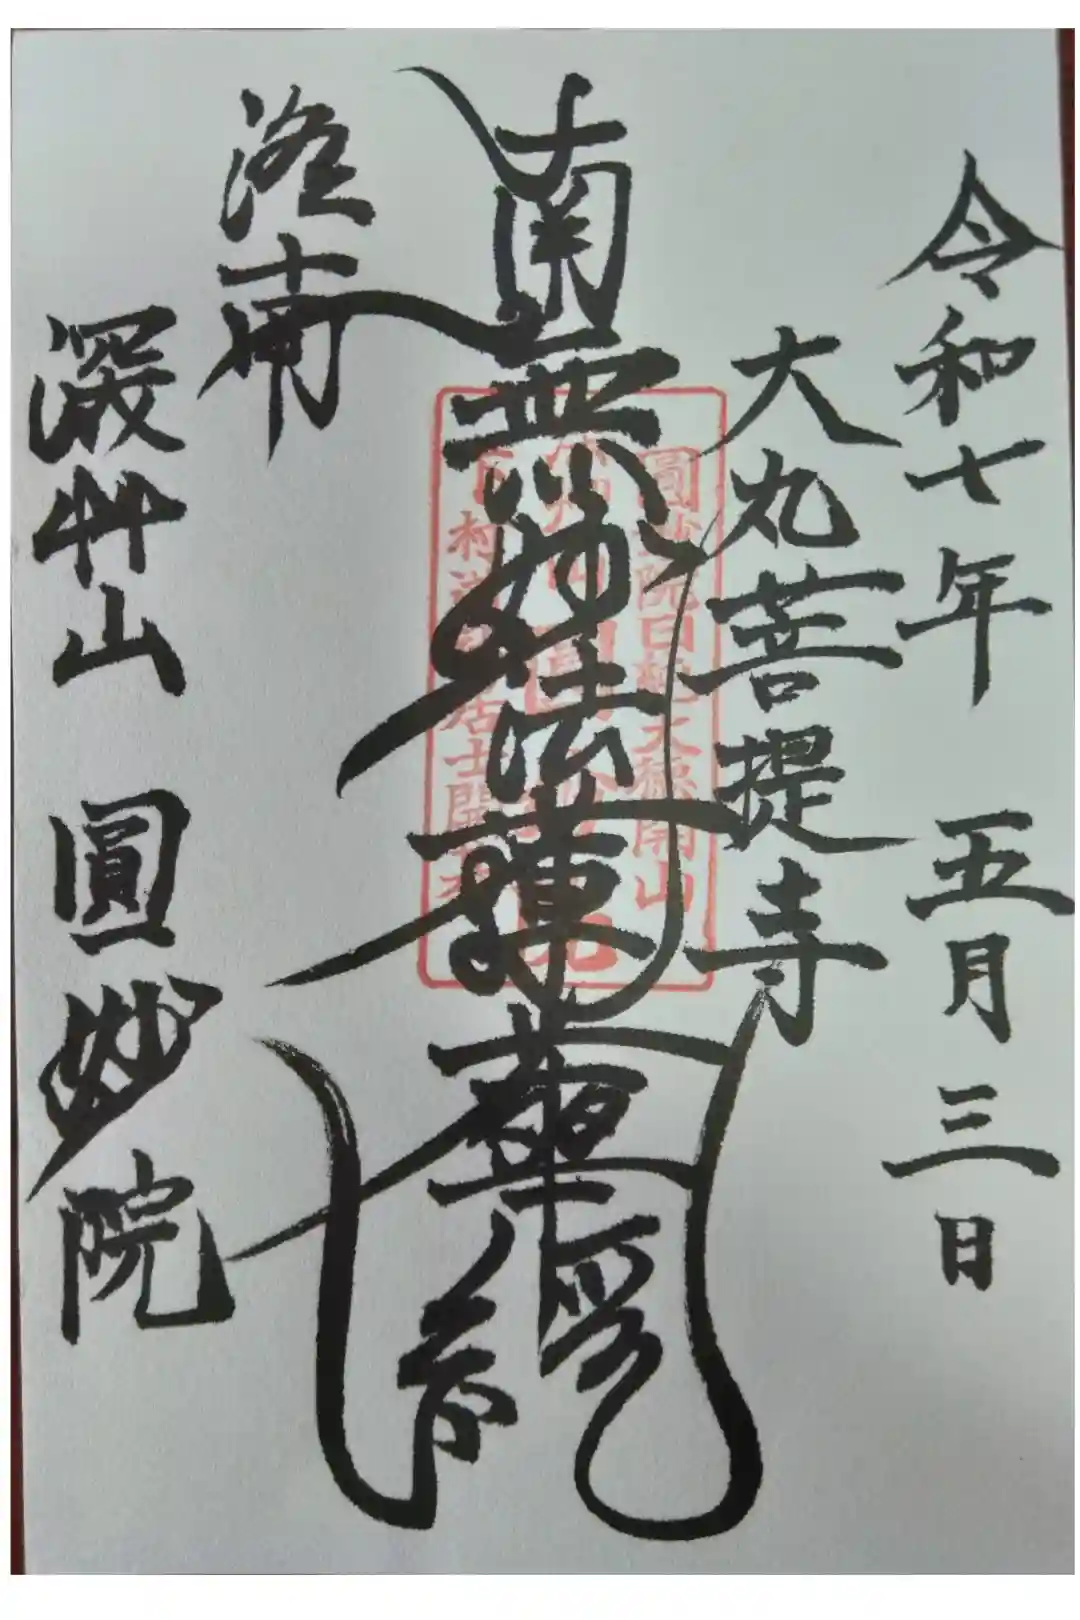 令和七年 五月 三日
大丸菩提寺
南無妙法蓮華経
洛南
深艸山 圓妙院